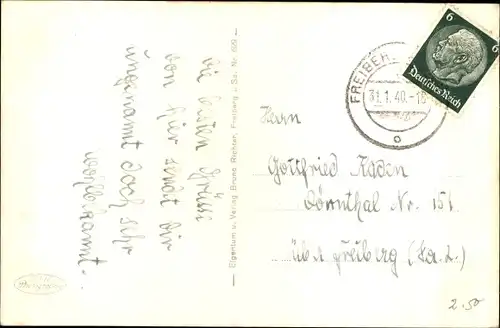 die besten Grüsse
von hier sendet Dir
ungenannt doch sehr
wohlbekannt.
Eigentum u. Verlag Bruno Richter, Freiberg - Sa. Nr. 609
FREIBER
31.1.40.-18
6 6
Deutsches Reich
Herrn
Gottfried Kaden
Dörnthal Nr. 151
über Freiberg (Sa. L.)
2.50